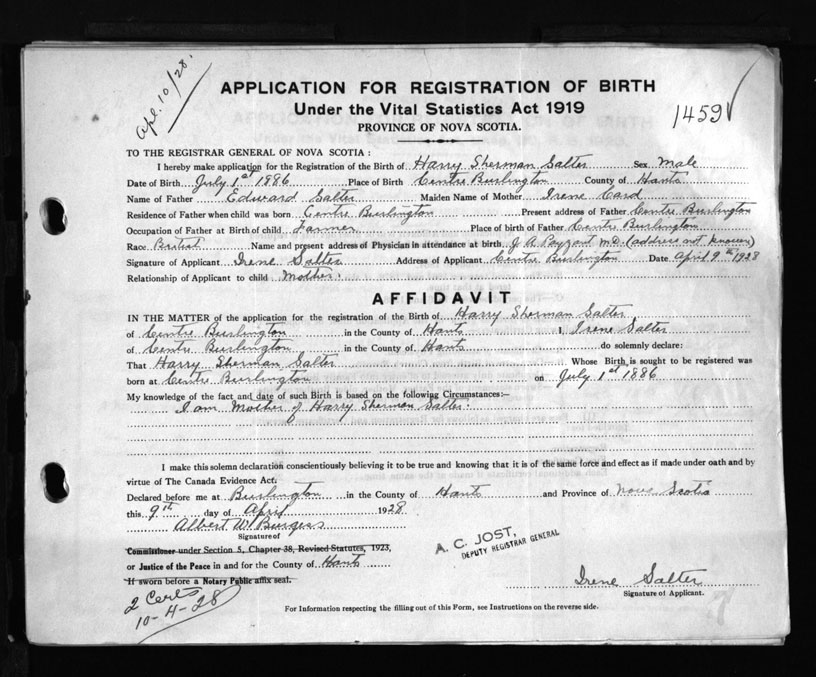 Apl. 10/28.
APPLICATION FOR REGISTRATION OF BIRTH
Under the Vital Statistics Act 1919
PROVINCE OF NOVA SCOTIA.
1459
TO THE REGISTRAR GENERAL OF NOVA SCOTIA:
I hereby make application for the Registration of the Birth of Harry Sherman Salter Sex Male
Date of Birth July 1st 1886 Place of Birth Centre Burlington County of Hants
Name of Father Edward Salter Maiden Name of Mother Irene Card
Residence of Father when child was born Centre Burlington Present address of Father Centre Burlington
Occupation of Father at Birth of child Farmer Place of birth of Father Centre Burlington
Race British Name and present address of Physician in attendance at birth J. A. Payzant M.D. (address not known)
Signature of Applicant Irene Salter Address of Applicant Centre Burlington Date April 9th 1928
Relationship of Applicant to child Mother.
AFFIDAVIT
IN THE MATTER of the application for the registration of the Birth of Harry Sherman Salter
of Centre Burlington in the County of Hants I, Irene Salter
of Centre Burlington in the County of Hants do solemnly declare:
That Harry Sherman Salter Whose Birth is sought to be registered was
born at Centre Burlington on July 1st 1886
My knowledge of the fact and date of such Birth is based on the following Circumstances:—
I am Mother of Harry Sherman Salter.
I make this solemn declaration conscientiously believing it to be true and knowing that it is of the same force and effect as if made under oath and by
virtue of The Canada Evidence Act:
Declared before me at Burlington in the County of Hants and Province of Nova Scotia
this 9th day of April 1928
Albert W. Burgess
Signature of
Commissioner under Section 5, Chapter 38, Revised Statutes, 1923,
or Justice of the Peace in and for the County of Hants
If sworn before a Notary Public affix seal.
A. C. JOST,
DEPUTY REGISTRAR GENERAL
Irene Salter
Signature of Applicant.
2 Certs
10-4-28
For Information respecting the filling out of this Form, see Instructions on the reverse side.